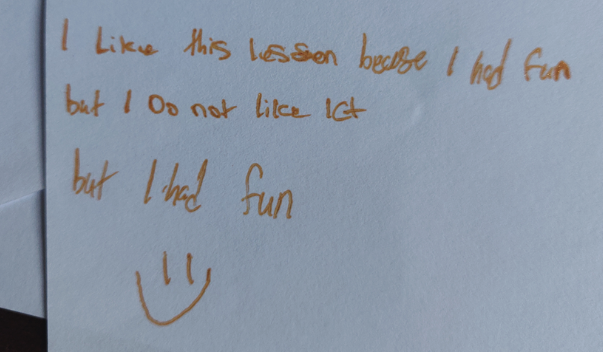 I Like this lesson becase I had fun
but I Do not like ICt
but I had fun